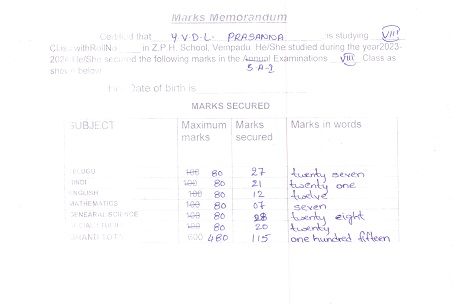 Marks Memorandum
Certified that Y.V.D.L. PRASANNA is studying VIII
Class with RollNo in Z.P.H. School, Vempadu. He/She studied during the year2023-
2024 He/She secured the following marks in the Annual Examinations VIII Class as
S.A-2
shown below
Date of birth is
MARKS SECURED
SUBJECT Maximum marks Marks secured Marks in words
TELUGU 100 80 27 twenty seven
HINDI 100 80 21 twenty one
ENGLISH 100 80 12 twelve
MATHEMATICS 100 80 07 seven
GENEARAL SCIENCE 100 80 28 twenty eight
SOCIAL STUDIES 100 80 20 twenty
GRAND TOTAL 600 480 115 one hundred fifteen